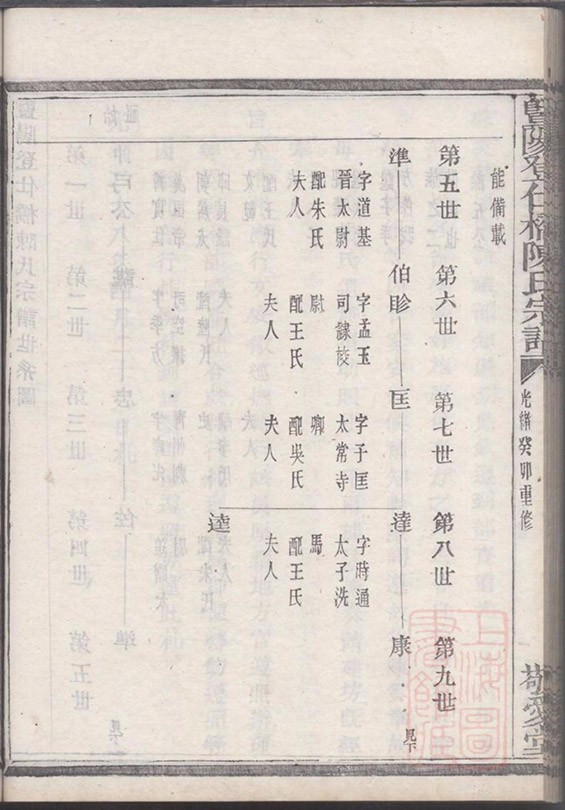 暨陽登仕橋陳氏宗譜
光緒癸卯重修
敬愛堂
能備載
第五世 第六世 第七世 第八世 第九世
準 伯眕 匡 達 康 見下
字道基
晉太尉
配朱氏
夫人
字孟玉
司隷校
尉
配王氏
夫人
字子匡
太常寺
卿
配吳氏
夫人
字時通
太子洗
馬
配王氏
夫人
逵
上海圖書館藏